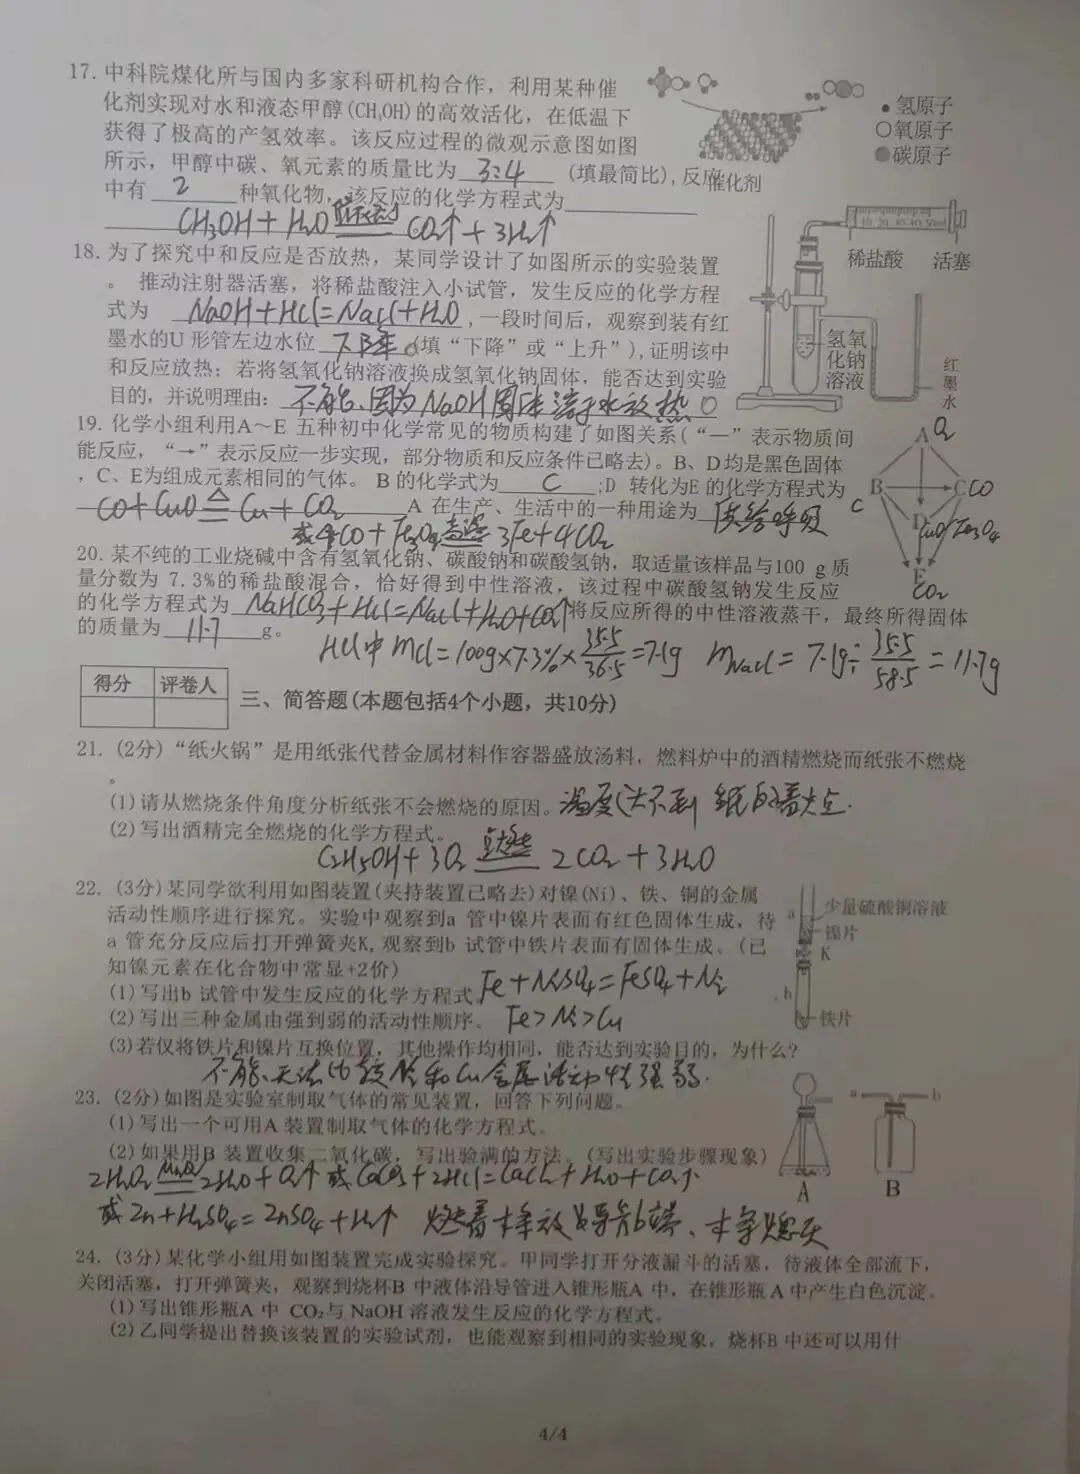 17. 中科院煤化所与国内多家科研机构合作，利用某种催
化剂实现对水和液态甲醇(CH₃OH)的高效活化，在低温下
获得了极高的产氢效率。该反应过程的微观示意图如图
所示，甲醇中碳、氧元素的质量比为 3:4 (填最简比)，反应
中有 2 种氧化物，该反应的化学方程式为
CH₃OH + H₂O CO₂↑ + 3H₂↑
氢原子
氧原子
碳原子
催化剂
18. 为了探究中和反应是否放热，某同学设计了如图所示的实验装置
。 推动注射器活塞，将稀盐酸注入小试管，发生反应的化学方程
式为 NaOH + HCl = NaCl + H₂O ，一段时间后，观察到装有红
墨水的U 形管左边水位 下降 (填“下降”或“上升”)，证明该中
和反应放热；若将氢氧化钠溶液换成氢氧化钠固体，能否达到实验
目的，并说明理由： 不能、因为NaOH固体溶于水放热。
10 20 30 40 50ml
稀盐酸 活塞
氢氧
化钠
溶液
红
墨
水
19. 化学小组利用A～E 五种初中化学常见的物质构建了如图关系(“—”表示物质间
能反应，“→”表示反应一步实现，部分物质和反应条件已略去)。B、D均是黑色固体
，C、E为组成元素相同的气体。 B 的化学式为 C ;D 转化为E 的化学方程式为
CO + CuO △ Cu + CO₂ A 在生产、生活中的一种用途为 供给呼吸
或4CO + Fe₃O₄ 高温 3Fe + 4CO₂
A O₂
B C
C CO
D CuO/Fe₃O₄
E
CO₂
20. 某不纯的工业烧碱中含有氢氧化钠、碳酸钠和碳酸氢钠，取适量该样品与100 g 质
量分数为 7.3%的稀盐酸混合，恰好得到中性溶液，该过程中碳酸氢钠发生反应
的化学方程式为 NaHCO₃ + HCl = NaCl + H₂O + CO₂↑ 将反应所得的中性溶液蒸干，最终所得固体
的质量为 11.7 g。
HCl中 mCl = 100g×7.3%×35.5/36.5 = 7.1g mNaCl = 7.1g÷35.5/58.5 = 11.7g
得分 评卷人
三、简答题(本题包括4个小题，共10分)
21. (2分) “纸火锅”是用纸张代替金属材料作容器盛放汤料，燃料炉中的酒精燃烧而纸张不燃烧
。
(1)请从燃烧条件角度分析纸张不会燃烧的原因。 温度达不到 纸的着火点.
(2)写出酒精完全燃烧的化学方程式。
C₂H₅OH + 3O₂ 点燃 2CO₂ + 3H₂O
22. (3分)某同学欲利用如图装置(夹持装置已略去)对镍(Ni)、铁、铜的金属
活动性顺序进行探究。实验中观察到a 管中镍片表面有红色固体生成，待
a 管充分反应后打开弹簧夹K,观察到b 试管中铁片表面有固体生成。(已
知镍元素在化合物中常显+2价)
(1)写出b 试管中发生反应的化学方程式 Fe + NiSO₄ = FeSO₄ + Ni
(2)写出三种金属由强到弱的活动性顺序。 Fe > Ni > Cu
(3)若仅将铁片和镍片互换位置，其他操作均相同，能否达到实验目的，为什么?
不能、无法比较Ni和Cu金属活动性强弱.
a 少量硫酸铜溶液
镍片
K
b
铁片
23. (2分)如图是实验室制取气体的常见装置，回答下列问题。
(1)写出一个可用A 装置制取气体的化学方程式。
(2)如果用B 装置收集二氧化碳，写出验满的方法。(写出实验步骤现象)
2H₂O₂ MnO₂ 2H₂O + O₂↑ 或 CaCO₃ + 2HCl = CaCl₂ + H₂O + CO₂↑
或Zn + H₂SO₄ = ZnSO₄ + H₂↑ 燃着木条放导管b端、木条熄灭
A
a b
B
24. (3分)某化学小组用如图装置完成实验探究。甲同学打开分液漏斗的活塞，待液体全部流下，
关闭活塞，打开弹簧夹，观察到烧杯B 中液体沿导管进入锥形瓶A 中，在锥形瓶 A 中产生白色沉淀。
(1)写出锥形瓶A 中 CO₂与 NaOH 溶液发生反应的化学方程式。
(2)乙同学提出替换该装置的实验试剂，也能观察到相同的实验现象，烧杯B 中还可以用什
4/4